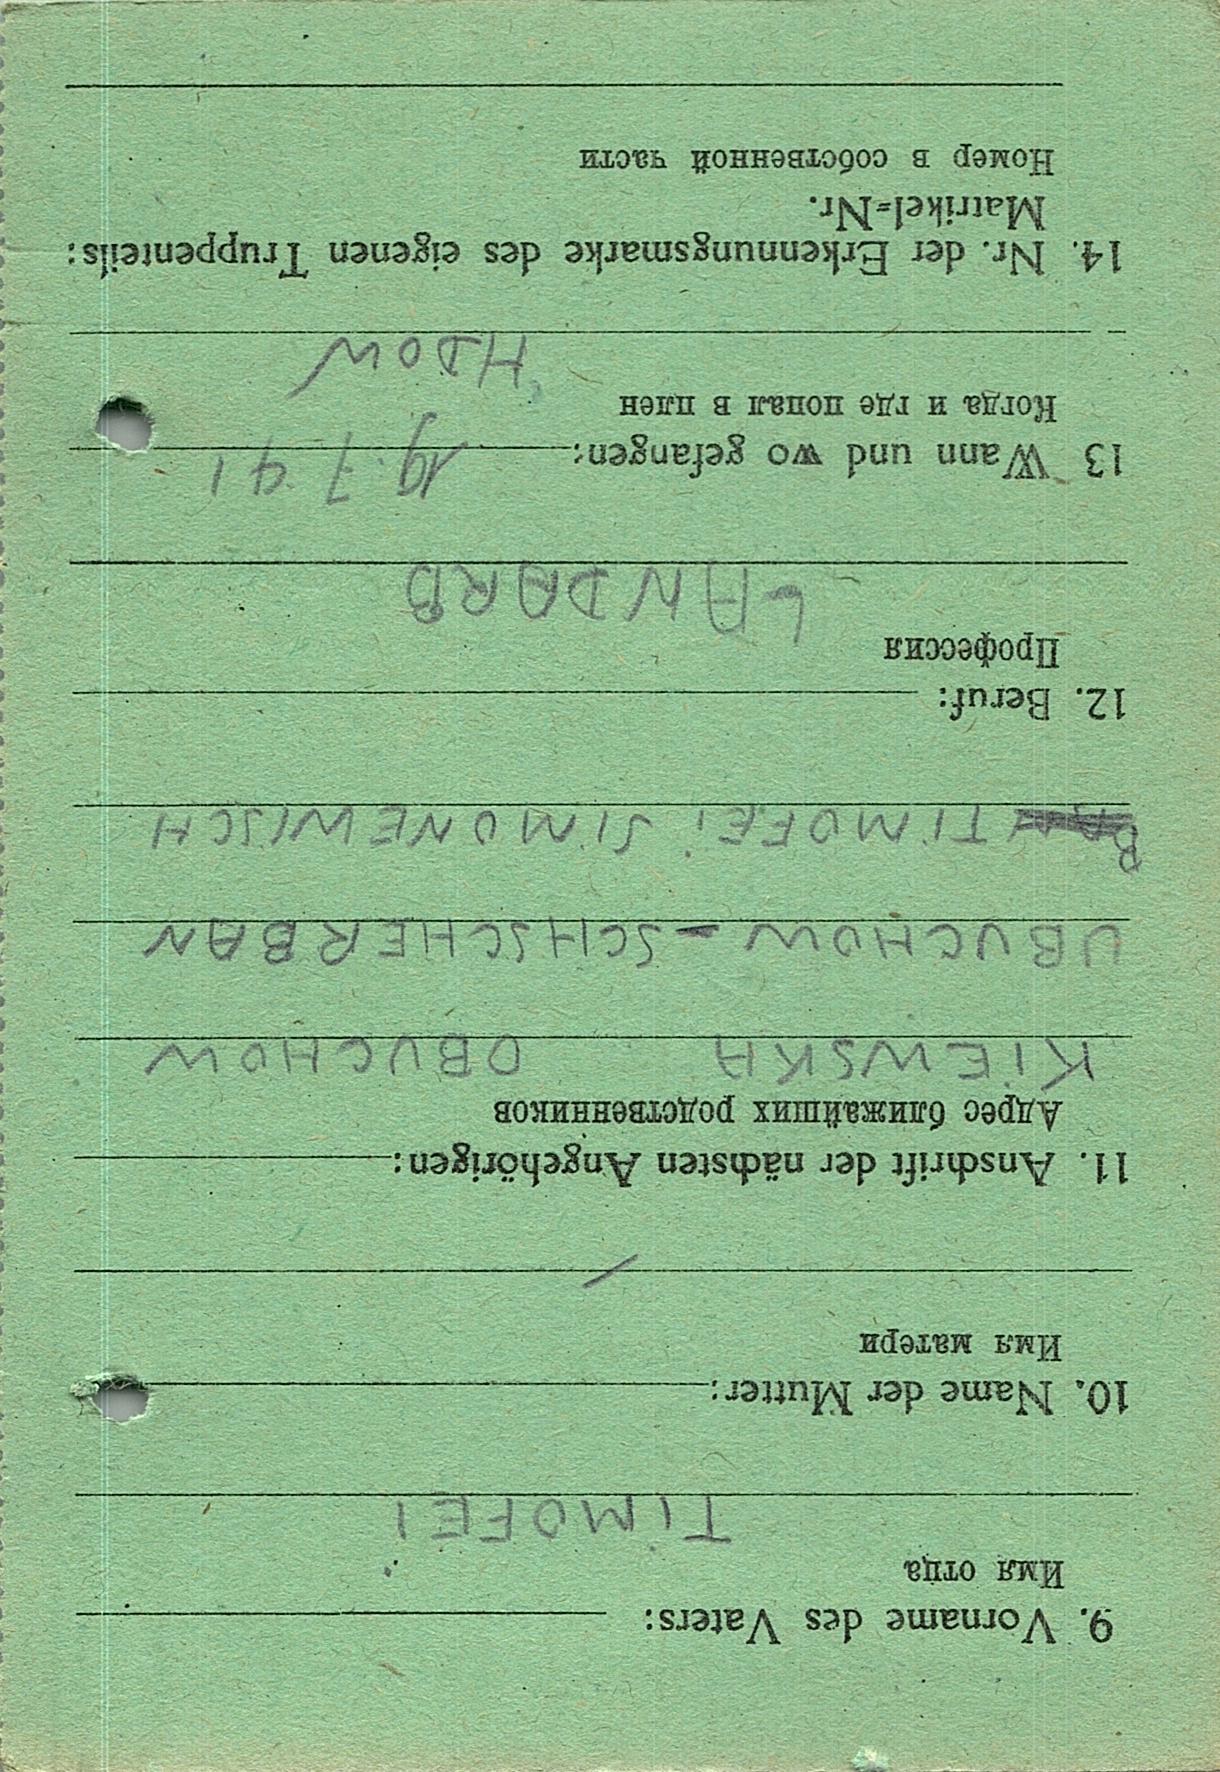 9. Vorname des Vaters:
Имя отца
TIMOFEI
10. Name der Mutter:
Имя матери
/
11. Anschrift der nächsten Angehörigen:
Адрес ближайших родственников
KIEWSKA OBUCHOW
UBUCHOW - SCHSCHERBAN
TIMOFEI SIMONEWISCH
12. Beruf:
Профессия
LANDARB
13 Wann und wo gefangen: 19.7.41
Когда и где попал в плен
HDOW
14. Nr. der Erkennungsmarke des eigenen Truppenteils:
Matrikel=Nr.
Номер в собственной части